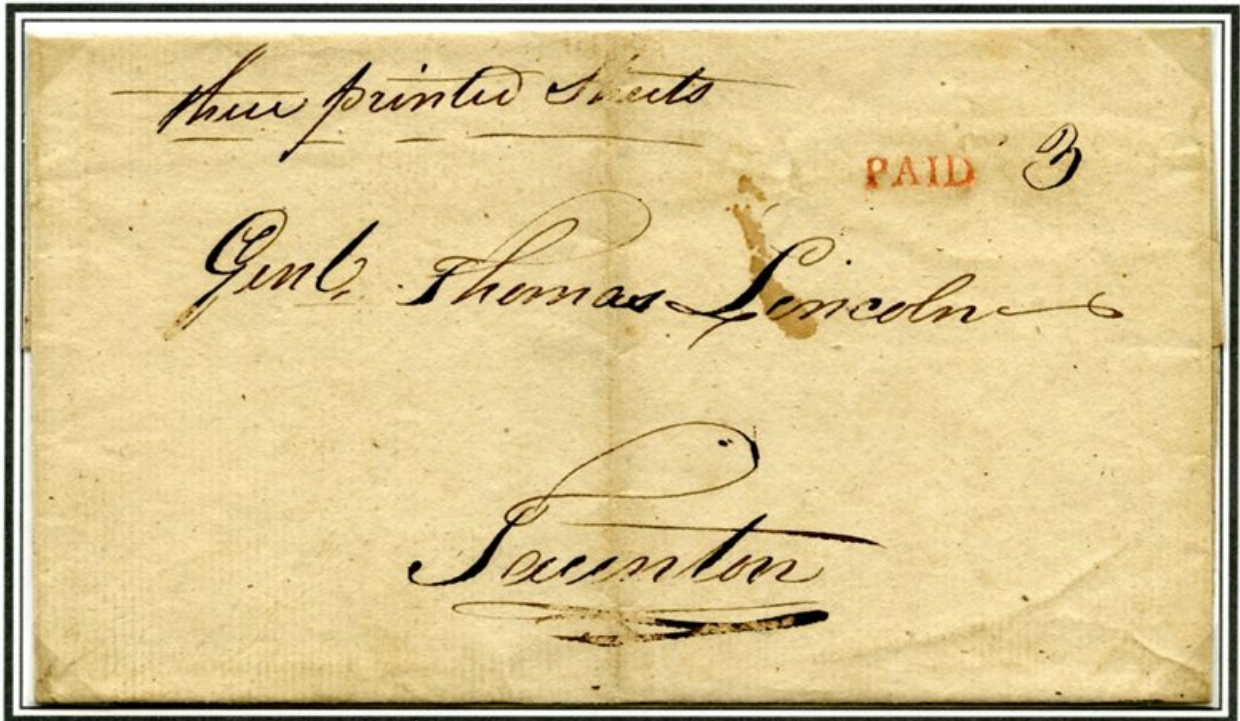 three printed Sheets
PAID 3
Genl. Thomas Lincoln
Taunton